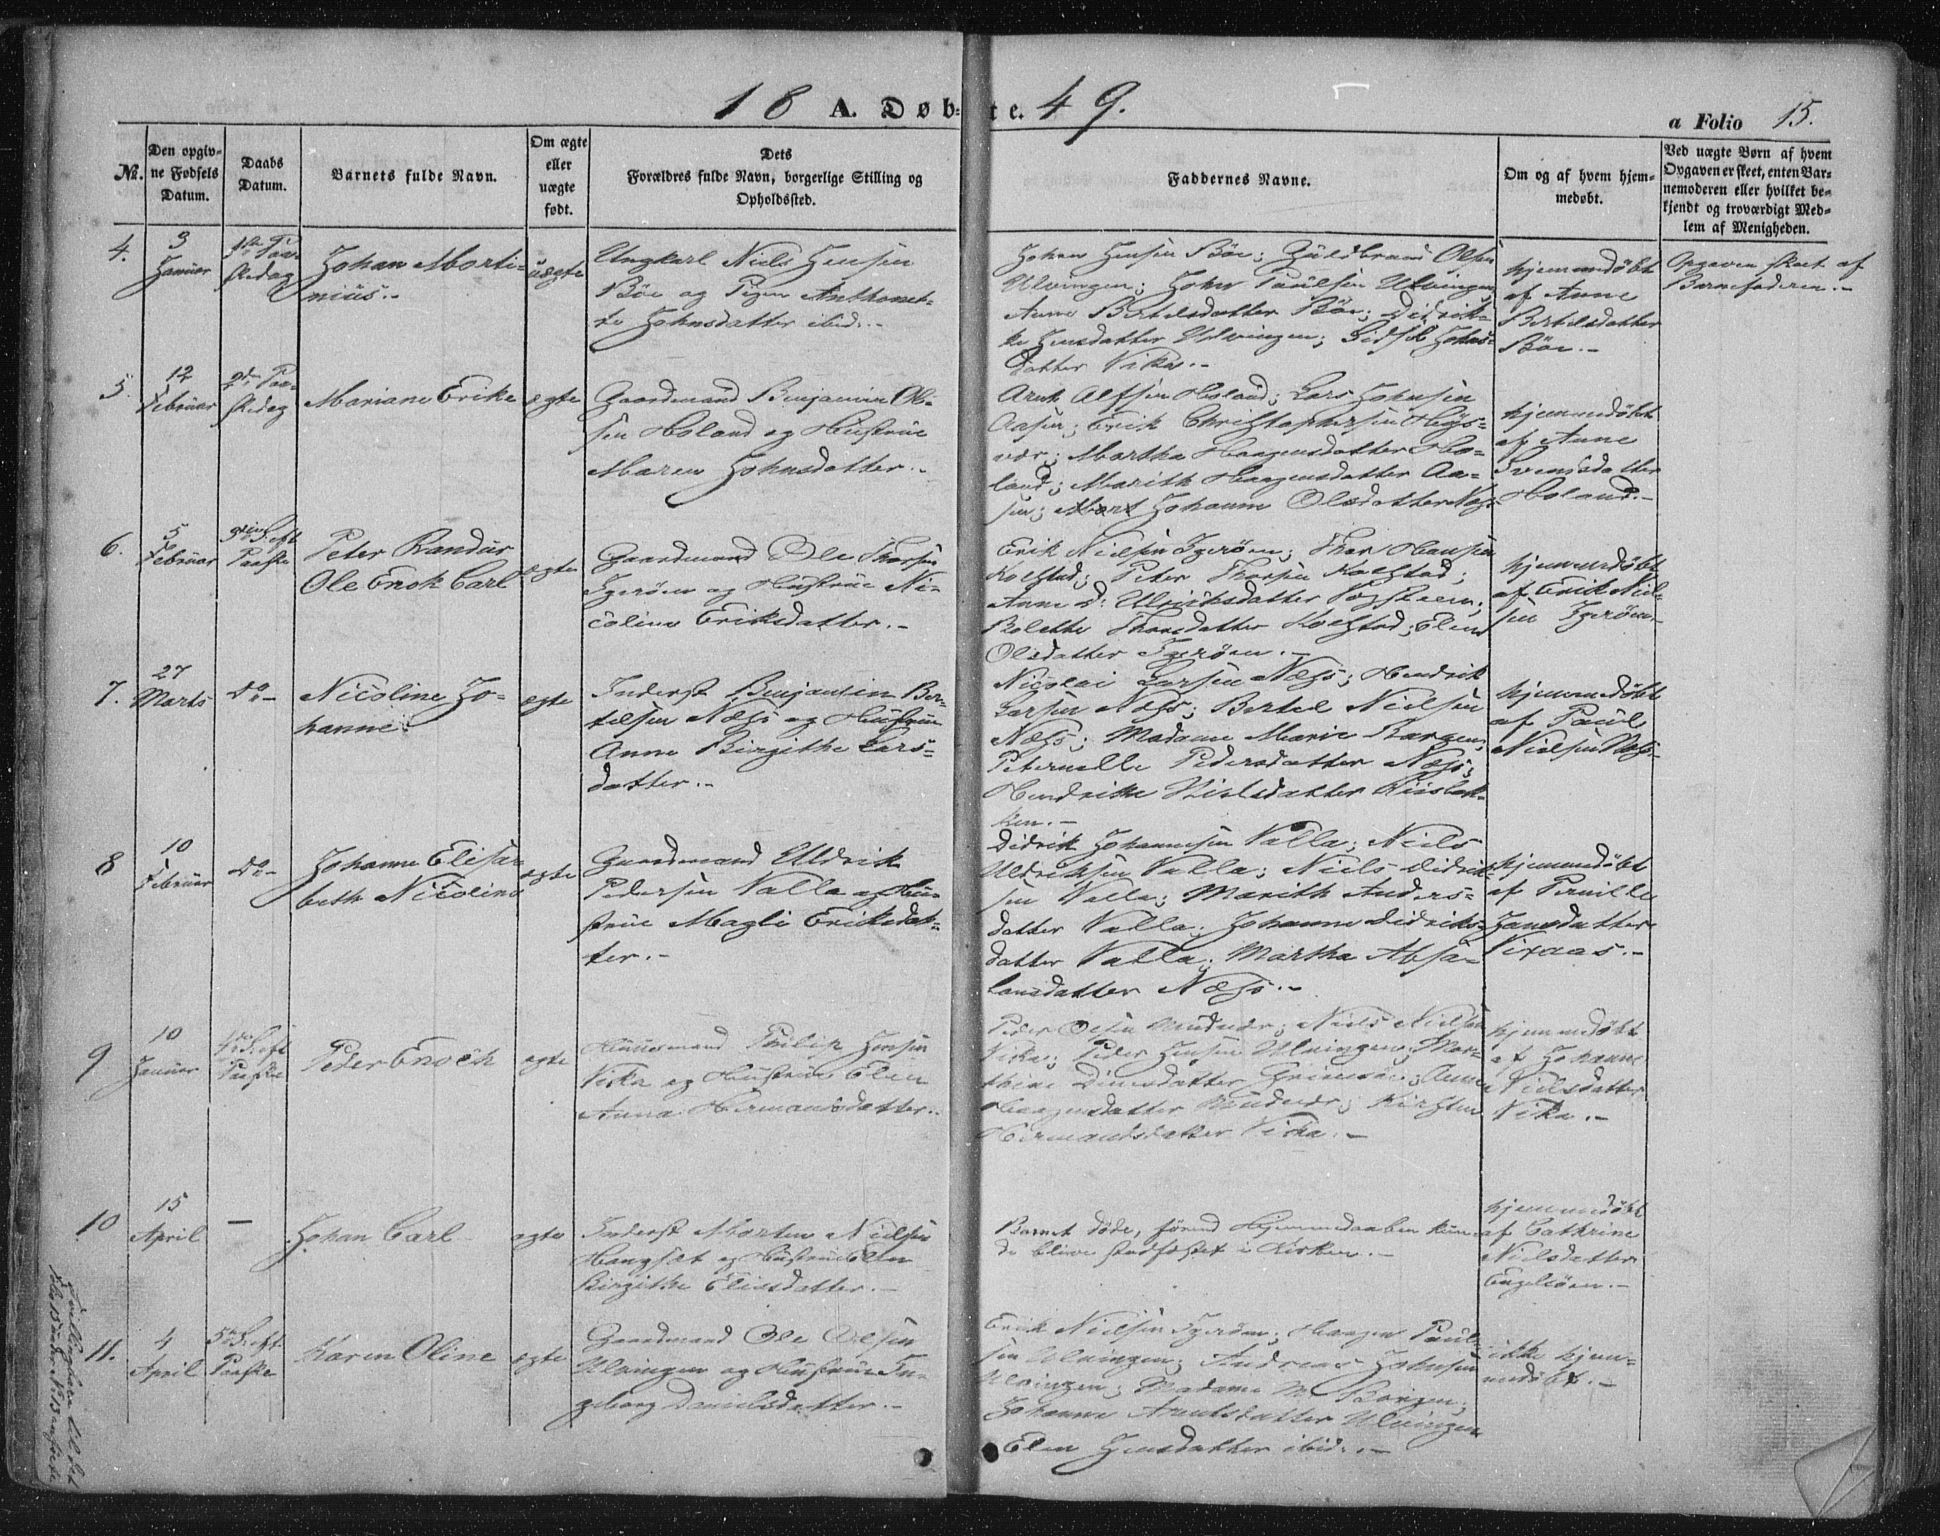 18 A. Døbte. 49.
a Folio 15.
No.
Den opgivne Fødsels Datum.
Daabs Datum.
Barnets fulde Navn.
Om ægte eller uægte født.
Dets Forældres fulde Navn, borgerlige Stilling og Opholdssted.
Faddernes Navne.
Om og af hvem hjemmedøbt.
Ved uægte Børn af hvem Opgaven er skeet, enten Barnemoderen eller hvilket bekjendt og troværdigt Medlem af Menigheden.
4.
3
Januar
1ste Paa-
skedag
Johan Morti-
nius.-
uægte
Ungkarl Niels Jensen
Böe og Pigen Anthonet-
te Johnsdatter ibid.-
Johan Jensen Böe; Guldbrand Olsen
Ulvingen; John Paulsen Ulvingen
Anne Bertelsdatter Böe; Didrik-
ke Jensdatter Ulvingen; Sidsel Johns-
datter Vika.-
hjemmedöbt
af Anne
Bertelsdatter
Böe.-
Opgaven skeet af
Barnefaderen.-
5.
12
Februar
2den Paa-
skedag
Mariane Erike
egte
Gaardmand Benjamin Ol-
sen Holand og Hustrue
Maren Johnsdatter.-
Arnt Alfsen Holand; Lars Johnsen
Aasen; Erik Christophersen Höys-
vær; Martha Haagensdatter Ho-
land; Marith Haagensdatter Aa-
sen; Johanne Olsdatter Næss
hjemmedöbt
af Anne
Svensdatter
Holand.-
6.
5
Februar
3die S. eft
Paaske
Peter Randur
Ole Enok Carl
egte
Gaardmand Ole Thorsen
Igeröen og Hustrue Ni-
coline Eriksdatter.-
Erik Nielsen Igeröen; Thor Hansen
Kolstad; Peter Thorsen Kolstad;
Anne D: Ulriksdatter
Bolette Thorsdatter Kolstad; Elen
Olsdatter Igeröen.-
hjemmedöbt
af Erik Niel-
sen Igeröen.-
7.
27
Marts
Do-
Nicoline Jo-
hanne
egte
Inderst Benjamin Ber-
telsen Næss og Hustrue
Anne Birgithe Lars-
datter.-
Nicolai Larsen Næss; Hendrik
Larsen Næss; Bertel Nielsen
Næss; Madame Marie Borgen;
Peternelle Pedersdatter Næss;
Hendrikke Nielsdatter
ken.-
hjemmedöbt
af Paul
Nielsen Næss.-
8
10
Februar
Do-
Johanne Elisa-
beth Nicoline
egte
Gaardmand Uldrik
Pedersen Valla og Hu-
strue Magli Eriksdat-
ter.-
Didrik Johannesen Valla; Niels
Uldriksen Valla; Niels Didrik-
sen Valla; Marith Anders-
datter Valla; Johanne Didriks-
datter Valla; Martha Absa-
lonsdatter Næss.-
hjemmedöbt
af Pernille
Jansdatter
Vixaas.-
9
10
Januar
4de S. eft
Paaske
Peder Enoch
egte
Huusmand Philip Jensen
Vika og Hustrue Elen
Anna Hermansdatter.-
Peder Olsen; Niels Nielsen
Vika; Peder Jensen Ulvingen; Mar-
thine Dinesdatter; Anne
Haagensdatter; Kirsten
Hermandsdatter Vika.-
hjemmedöbt
af Johanne
Nielsdatter
Vika.-
10
15
April
—
Johan Carl
egte
Inderst Morten Nielsen
Haugsat og Hustrue Elen
Birgithe Eliasdatter.-
Barnet döde, förend Hjemmedaaben kun-
de blive stadfæstet i Kirken.-
hjemmedöbt
af Cathrine
Nielsdatter
Engelsöen.-
11.
4
April
5te S. eft
Paaske
Karen Oline
egte
Gaardmand Ole Olsen
Ulvingen og Hustrue In-
geborg Danielsdatter.-
Erik Nielsen Igeröen; Haagen Paul-
sen Ulvingen; Andreas Johnsen
Ulvingen; Madame M. Borgen;
Johanne Arntsdatter Ulvingen
Elen Jensdatter ibid.-
ikke hjem-
medöbt.-